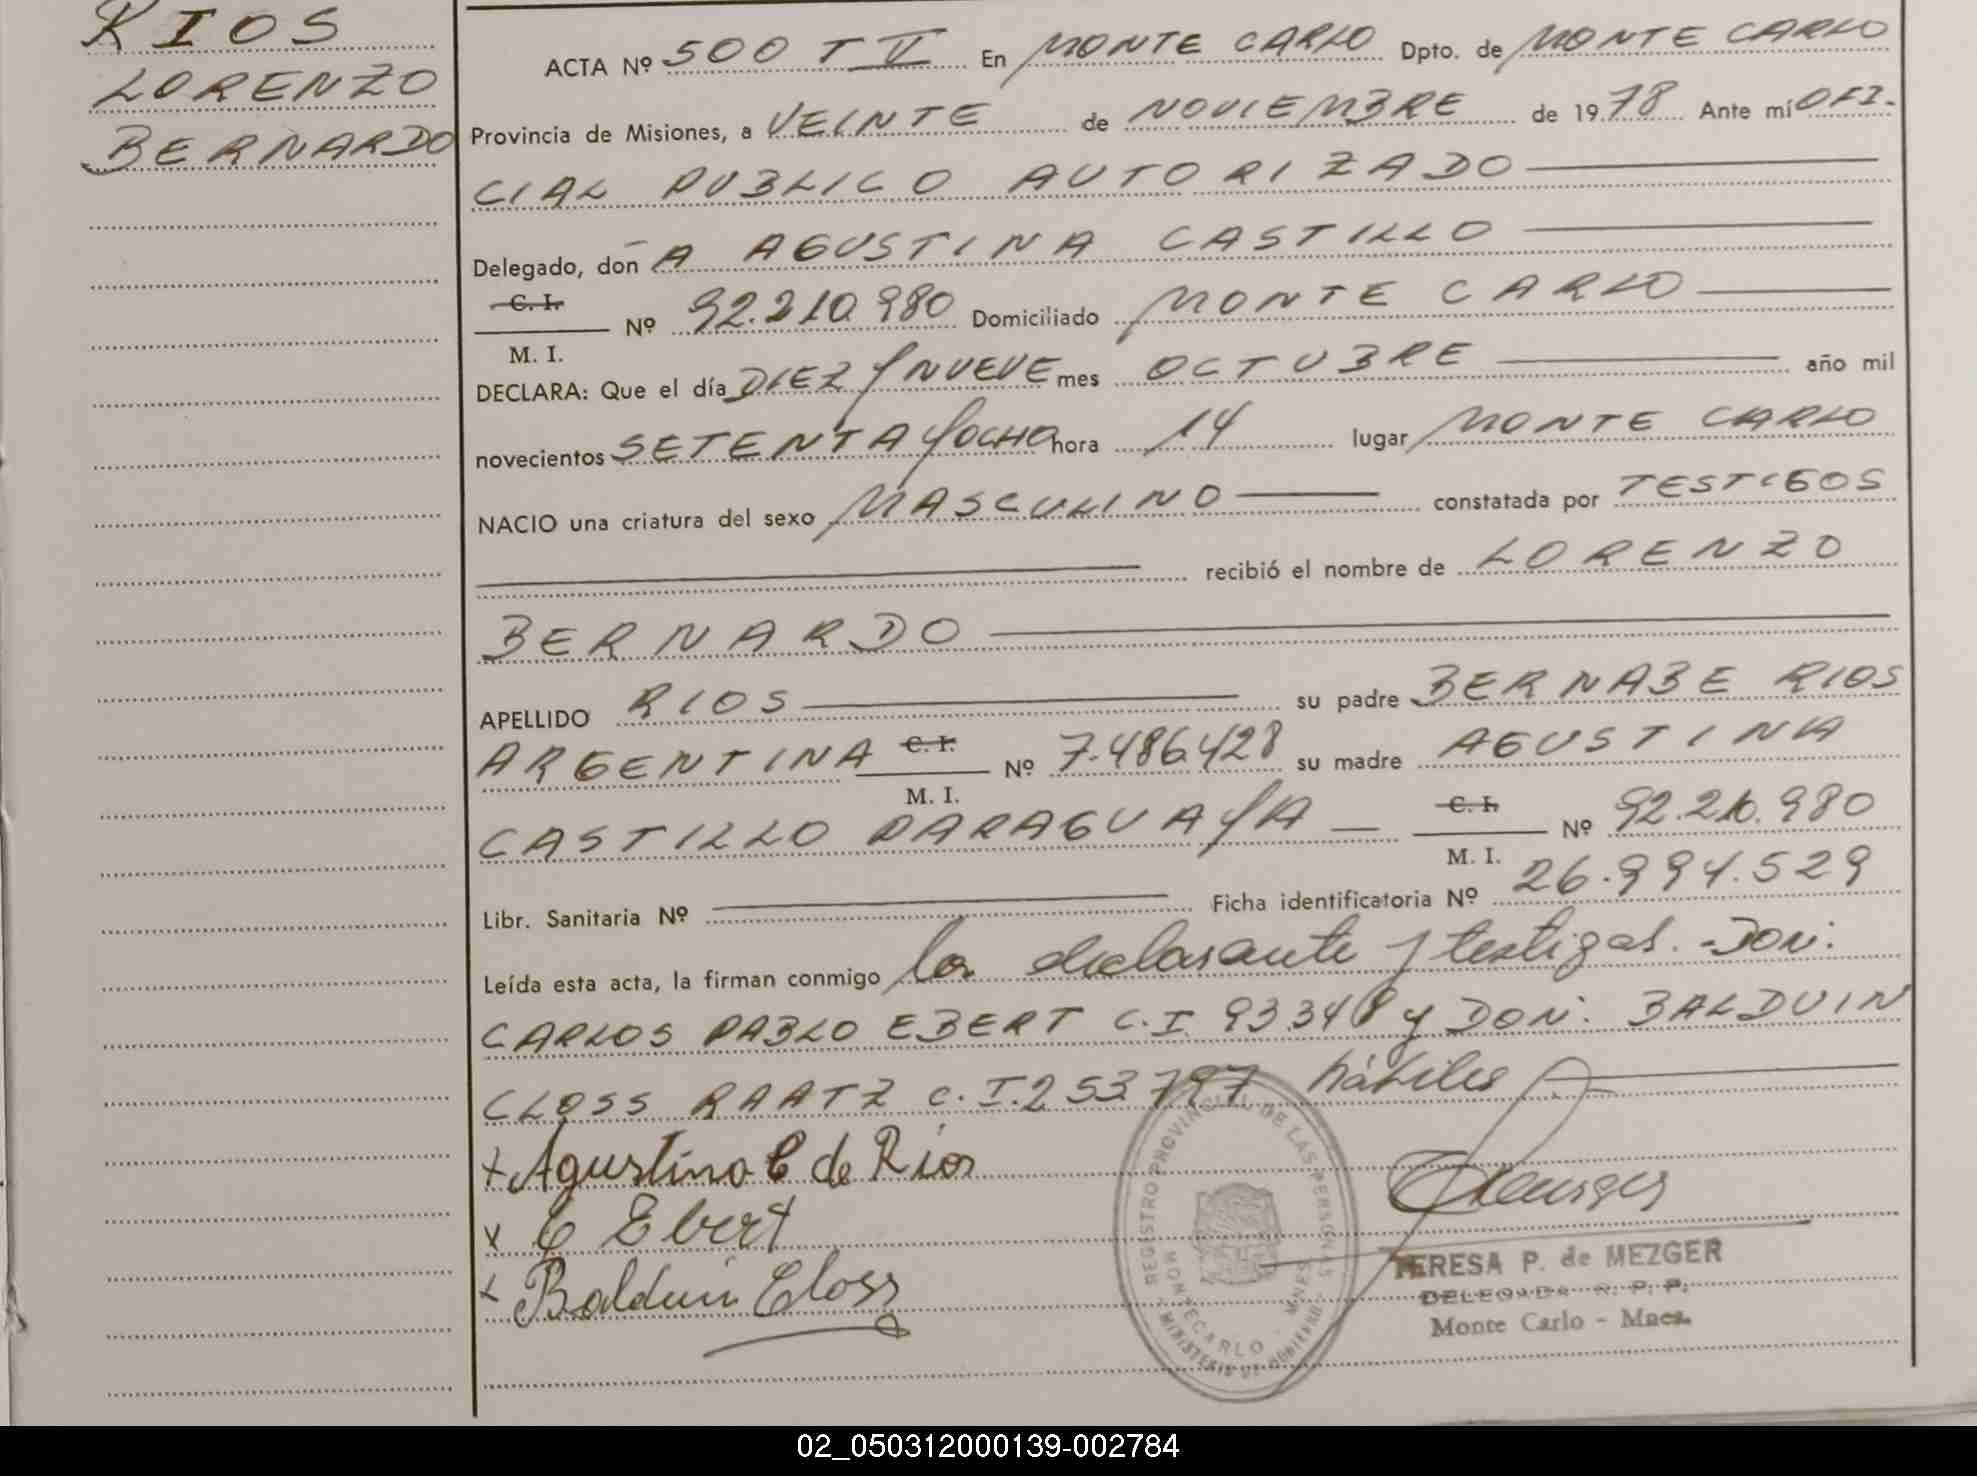 RIOS
LORENZO
BERNARDO
ACTA Nº 500 T V En MONTE CARLO Dpto. de MONTE CARLO
Provincia de Misiones, a VEINTE de NOVIEMBRE de 1978 Ante mí OFI-
CIAL PUBLICO AUTORIZADO
Delegado, don A AGUSTINA CASTILLO
C. I.
Nº 92.210.980 Domiciliado MONTE CARLO
M. I.
DECLARA: Que el día DIEZ y NUEVE mes OCTUBRE año mil
novecientos SETENTA y OCHO hora 14 lugar MONTE CARLO
NACIO una criatura del sexo MASCULINO constatada por TESTIGOS
recibió el nombre de LORENZO
BERNARDO
APELLIDO RIOS su padre BERNABE RIOS
ARGENTINA C. I. Nº 7.486.428 su madre AGUSTINA
M. I.
CASTILLO PARAGUAyA C. I. Nº 92.210.980
M. I.
Libr. Sanitaria Nº Ficha identificatoria Nº 26.994.529
Leída esta acta, la firman conmigo la declarante y testigos. Don:
CARLOS PABLO EBERT C.I 93348 y DON: BALDUIN
CLOSS RAATZ C.I. 253797 hábiles
+ Agustina C de Rios
x C Ebert
x Balduin Closs
REGISTRO PROVINCIAL DE LAS PERSONAS
MONTECARLO - MNES
MINISTERIO DE GOBIERNO
TERESA P. de MEZGER
DELEGADA R. P. P.
Monte Carlo - Mnes.
02_050312000139-002784